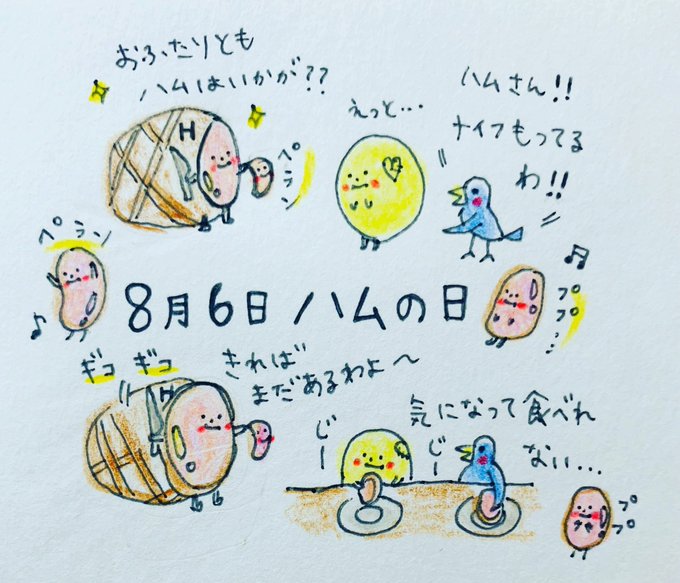 おふたりとも
ハムはいかが??
えっと…
ハムさん!!
ナイフもってる
わ!!
H
ペラン
ペラン
8月6日 ハムの日
ププ…
ギコ ギコ
きれば
まだあるわよ〜
H
じー
じー
気になって食べれ
ない…
ププ